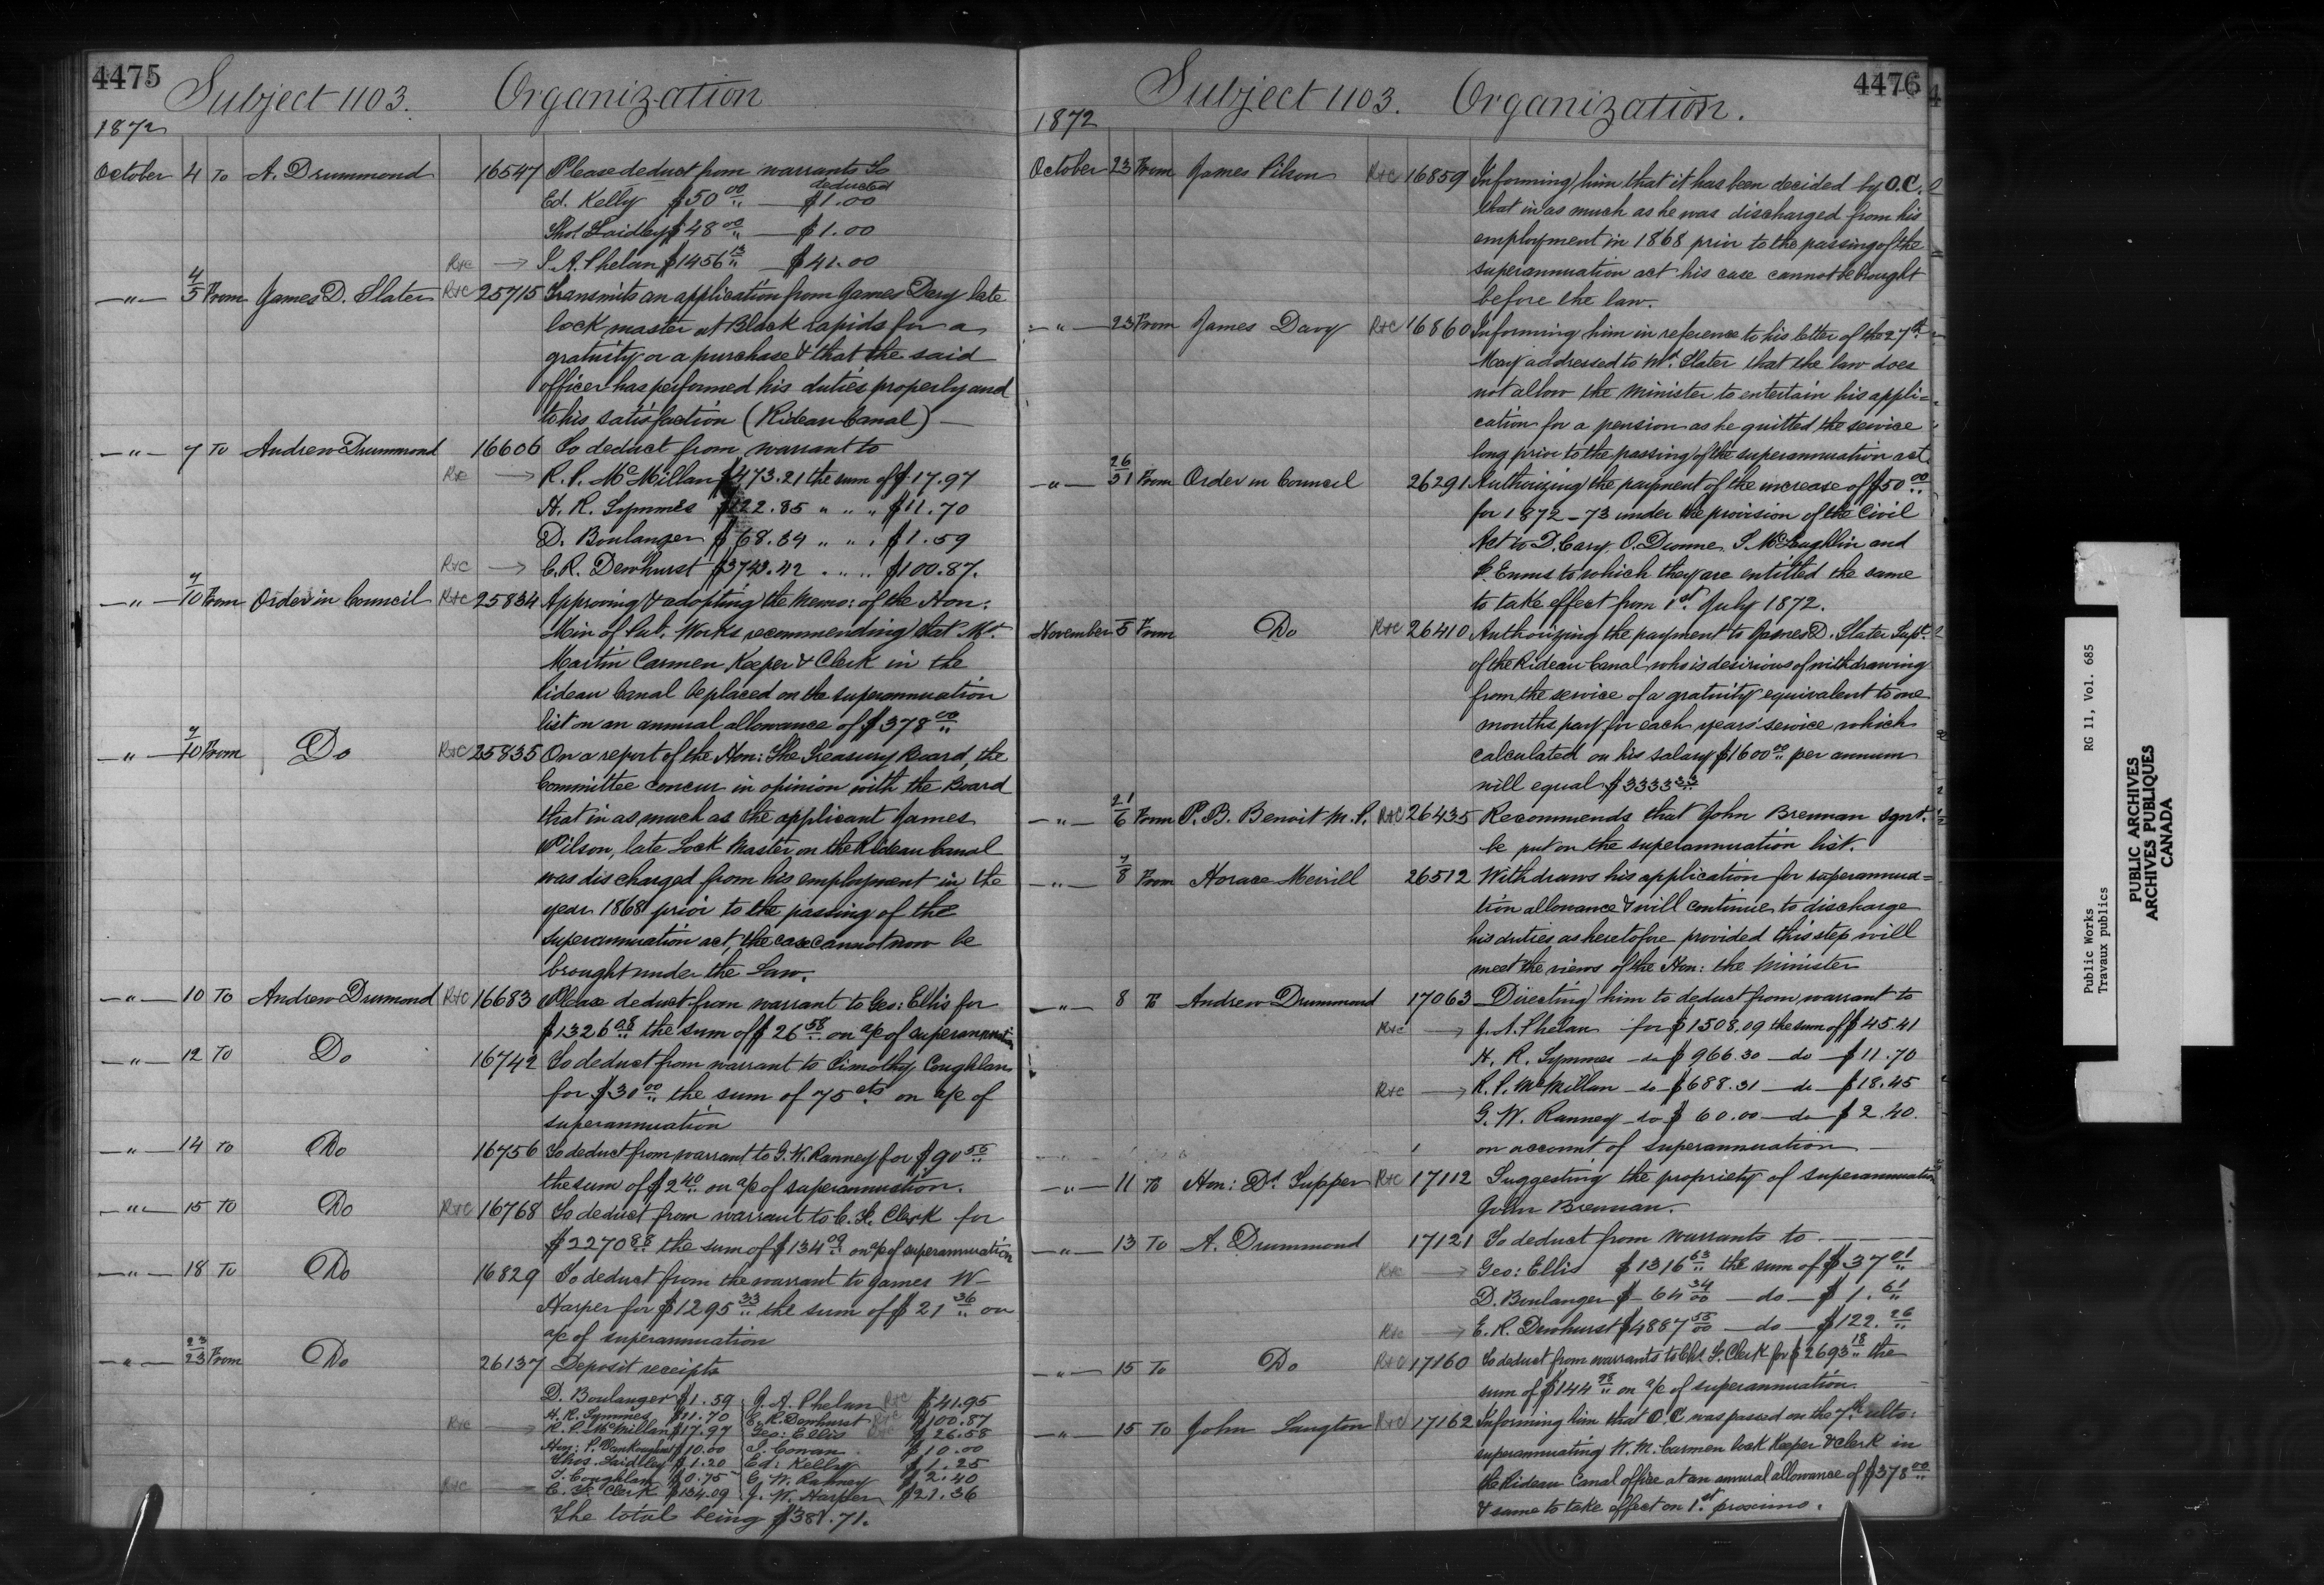 4475
Subject 1103. Organization
1872
October 4 To A. Drummond 16547 Please deduct from warrants To
deducted
Ed. Kelly $50 00 — $1.00
Thos Laidley $48 00 — $1.00
R+C → J. A. Phelan $1456 13 — $41.00
—"— 4/5 From James D. Slater R+C 25715 Transmits an application from James Davy late
lock master at Black rapids for a
gratuity or a purchase & that the said
officer has performed his duties properly and
to his satisfaction (Rideau Canal) —
—"— 7 To Andrew Drummond 16606 To deduct from warrant to
R+C → R. P. McMillan $473.21 the sum of $17.97
H. R. Symmes $122.85 " " " $11.70
D. Boulanger $68.34 " " " $1.59
R+C → C. R. Dewhurst $3743.42 " " " $100.87.
—"— 7/10 From Order in Council R+C 25834 Approving & adopting the Memo: of the Hon:
Min of Pub. Works recommending that Mr.
Martin Carmen Keeper & Clerk in the
Rideau Canal be placed on the superannuation
list on an annual allowance of $378 00
—"— 7/10 From Do R+C 25835 On a report of the Hon: The Treasury Board, the
Committee concur in opinion with the Board
that in as much as the applicant James
Pilson, late Lock Master on the Rideau Canal
was discharged from his employment in the
year 1868 prior to the passing of the
superannuation act, the case cannot now be
brought under the Law.
—"— 10 To Andrew Drumond R+C 16683 Please deduct from warrant to Geo: Ellis for
$1326 08 the sum of $26 58 on a/c of superannuation
—"— 12 To Do 16742 To deduct from warrant to Timothy Coughlan
for $30 00 the sum of 75 cts on a/c of
superannuation
—"— 14 To Do 16756 To deduct from warrant to G. W. Ranney for $90 55
the sum of $2 40 on a/c of superannuation.
—"— 15 To Do R+C 16768 To deduct from warrant to C. L. Clerk for
$2270 88 the sum of $134 09 on a/c of superannuation
—"— 18 To Do 16829 To deduct from the warrant to James W—
Harper for $1295 33 the sum of $21 36 on
a/c of superannuation
—"— 23/23 From Do 26137 Deposit receipts
D. Boulanger $1.59 J. A. Phelan R+C $41.95
H. R. Symmes $11.70 C. R. Dewhurst R+C $100.87
R+C → R. P. McMillan $17.97 Geo: Ellis R+C $26.58
Hon: P. Vankoughnet $10.00 J. Cowan $10.00
Thos. Laidley $1.20 Ed: Kelly $1.25
T. Coughlan $0.75 G. W. Ranney $2.40
R+C C. L. Clerk $134.09 J. W. Harper $21.36
The total being $381.71.
4476
Subject 1103. Organization.
1872
October 23 From James Pilson R+C 16859 Informing him that it has been decided by O.C.
that in as much as he was discharged from his
employment in 1868 prior to the passing of the
superannuation act his case cannot be brought
before the law.
—"— 23 From James Davy R+C 16860 Informing him in reference to his letter of the 27th
May addressed to Mr. Slater that the law does
not allow the Minister to entertain his appli=
cation for a pension as he quitted the service
long prior to the passing of the superannuation act.
—"— 26/31 From Order in Council 26291 Authorizing the payment of the increase of $50 00
for 1872–73 under the provision of the Civil
Act to D. Cary, O. Dionne, S. McLaughlin and
F. Ennis to which they are entitled the same
to take effect from 1st July 1872.
November 5 From Do R+C 26410 Authorizing the payment to James D. Slater Supt.
of the Rideau Canal who is desirious of withdrawing
from the service of a gratuity equivalent to one
months pay for each years' service which
calculated on his salary $1600 00 per annum
will equal $3333 33
—"— 21/6 From P. B. Benoit M. P. R+C 26435 Recommends that John Brennan sgnt.
be put on the superannuation list.
—"— 7/8 From Horace Merrill 26512 Withdraws his application for superannua=
tion allowance & will continue to discharge
his duties as heretofore provided this step will
meet the views of the Hon: the Minister
—"— 8 To Andrew Drummond 17063 Directing him to deduct from warrant to
R+C → J. A. Phelan for $1508.09 the sum of $45.41
H. R. Symmes — do $966.30 — do — $11.70
R+C → R. P. McMillan — do $688.31 — do — $18.45
G. W. Ranney — do $60.00 — do — $2.40.
on account of superannuation —
—"— 11 To Hon: Dr. Tupper R+C 17112 Suggesting the propriety of superannuation
John Brennan.
—"— 13 To A. Drummond 17121 To deduct from warrants to —
R+C → Geo: Ellis $1316 63 the sum of $37 01
D. Boulanger $64 34/00 — do — $1.61
R+C → E. R. Dewhurst $4887 55/00 — do — $122.26
—"— 15 To Do R+C 17160 To deduct from warrants to Chs. L. Clerk for $2693 18 the
sum of $144 98 on a/c of superannuation.
—"— 15 To John Langton R+C 17162 Informing him that O.C was passed on the 7th ulto:
superannuating W. M. Carmen lock Keeper & Clerk in
the Rideau Canal office at an annual allowance of $378 00
& same to take effect on 1st proximo.
Public Works RG 11, Vol. 685
Travaux publics
PUBLIC ARCHIVES
ARCHIVES PUBLIQUES
CANADA